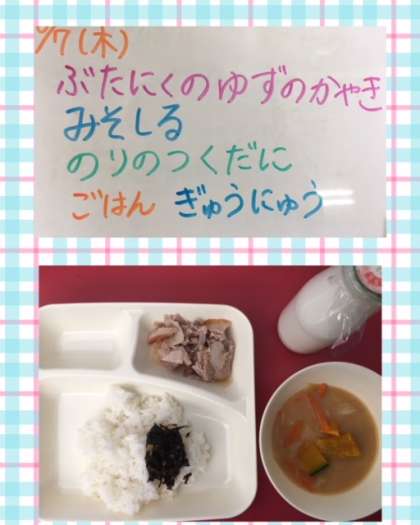 /7(木)
ぶたにくのゆずのかやき
みそしる
のりのつくだに
ごはん ぎゅうにゅう